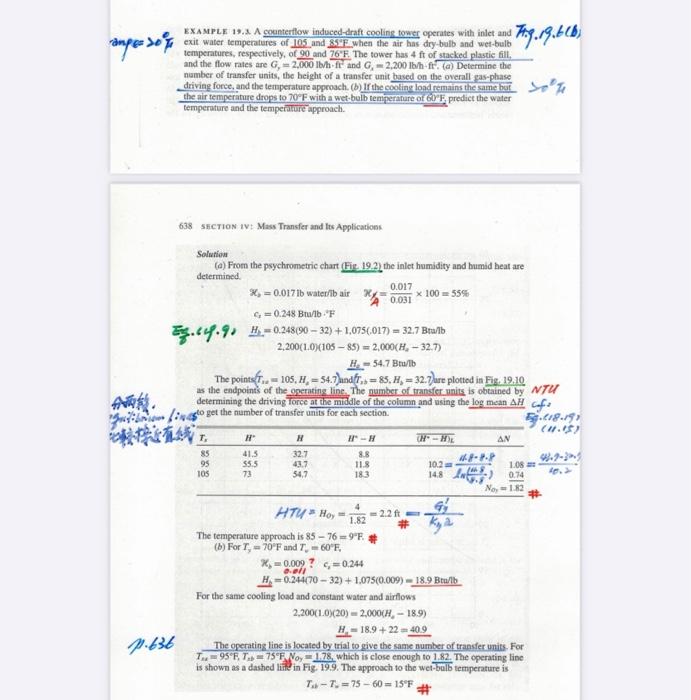 EXAMPLE 19.3. A counterflow induced-draft cooling tower operates with inlet and
exit water temperatures of 105 and 85°F when the air has dry-bulb and wet-bulb
temperatures, respectively, of 90 and 76°F. The tower has 4 ft of stacked plastic fill,
and the flow rates are Gy = 2,000 lb/h·ft² and Gx = 2,200 lb/h·ft². (a) Determine the
number of transfer units, the height of a transfer unit based on the overall gas-phase
driving force, and the temperature approach. (b) If the cooling load remains the same but
the air temperature drops to 70°F with a wet-bulb temperature of 60°F, predict the water
temperature and the temperature approach.
Fig.19.6(b)
range= 20°F
20°F
638 SECTION IV: Mass Transfer and Its Applications
Solution
(a) From the psychrometric chart (Fig. 19.2) the inlet humidity and humid heat are
determined.
ℋb = 0.017 lb water/lb air ℋA = 0.017/0.031 × 100 = 55%
cs = 0.248 Btu/lb·°F
Eq.(19.9) Hb = 0.248(90 − 32) + 1,075(.017) = 32.7 Btu/lb
2,200(1.0)(105 − 85) = 2,000(Ha − 32.7)
Ha = 54.7 Btu/lb
The points (Txa = 105, Ha = 54.7) and (Txb = 85, Hb = 32.7) are plotted in Fig. 19.10
as the endpoints of the operating line. The number of transfer units is obtained by NTU
determining the driving force at the middle of the column and using the log mean ΔH cf.
to get the number of transfer units for each section. Eq.(18.19)
(11.15)
分兩段
Equilibrium lines
比較接近直線
Tx H* H H* − H (H* − H)L ΔN
85 41.5 32.7 8.8
95 55.5 43.7 11.8 10.2 = 11.8-8.8 / ln(11.8/8.8) 1.08 = 43.7-32.7 / 10.2
105 73 54.7 18.3 14.8 0.74
NOy = 1.82 #
HTU = HOy = 4/1.82 = 2.2 ft # = G'y/Kya
The temperature approach is 85 − 76 = 9°F. #
(b) For Ty = 70°F and Tw = 60°F,
ℋb = 0.009 ? cs = 0.244
0.011
Hb = 0.244(70 − 32) + 1,075(0.009) = 18.9 Btu/lb
For the same cooling load and constant water and airflows
2,200(1.0)(20) = 2,000(Ha − 18.9)
Ha = 18.9 + 22 = 40.9
p.636 The operating line is located by trial to give the same number of transfer units. For
Txa = 95°F, Txb = 75°F, NOy = 1.78, which is close enough to 1.82. The operating line
is shown as a dashed line in Fig. 19.9. The approach to the wet-bulb temperature is
Txb − Tw = 75 − 60 = 15°F #